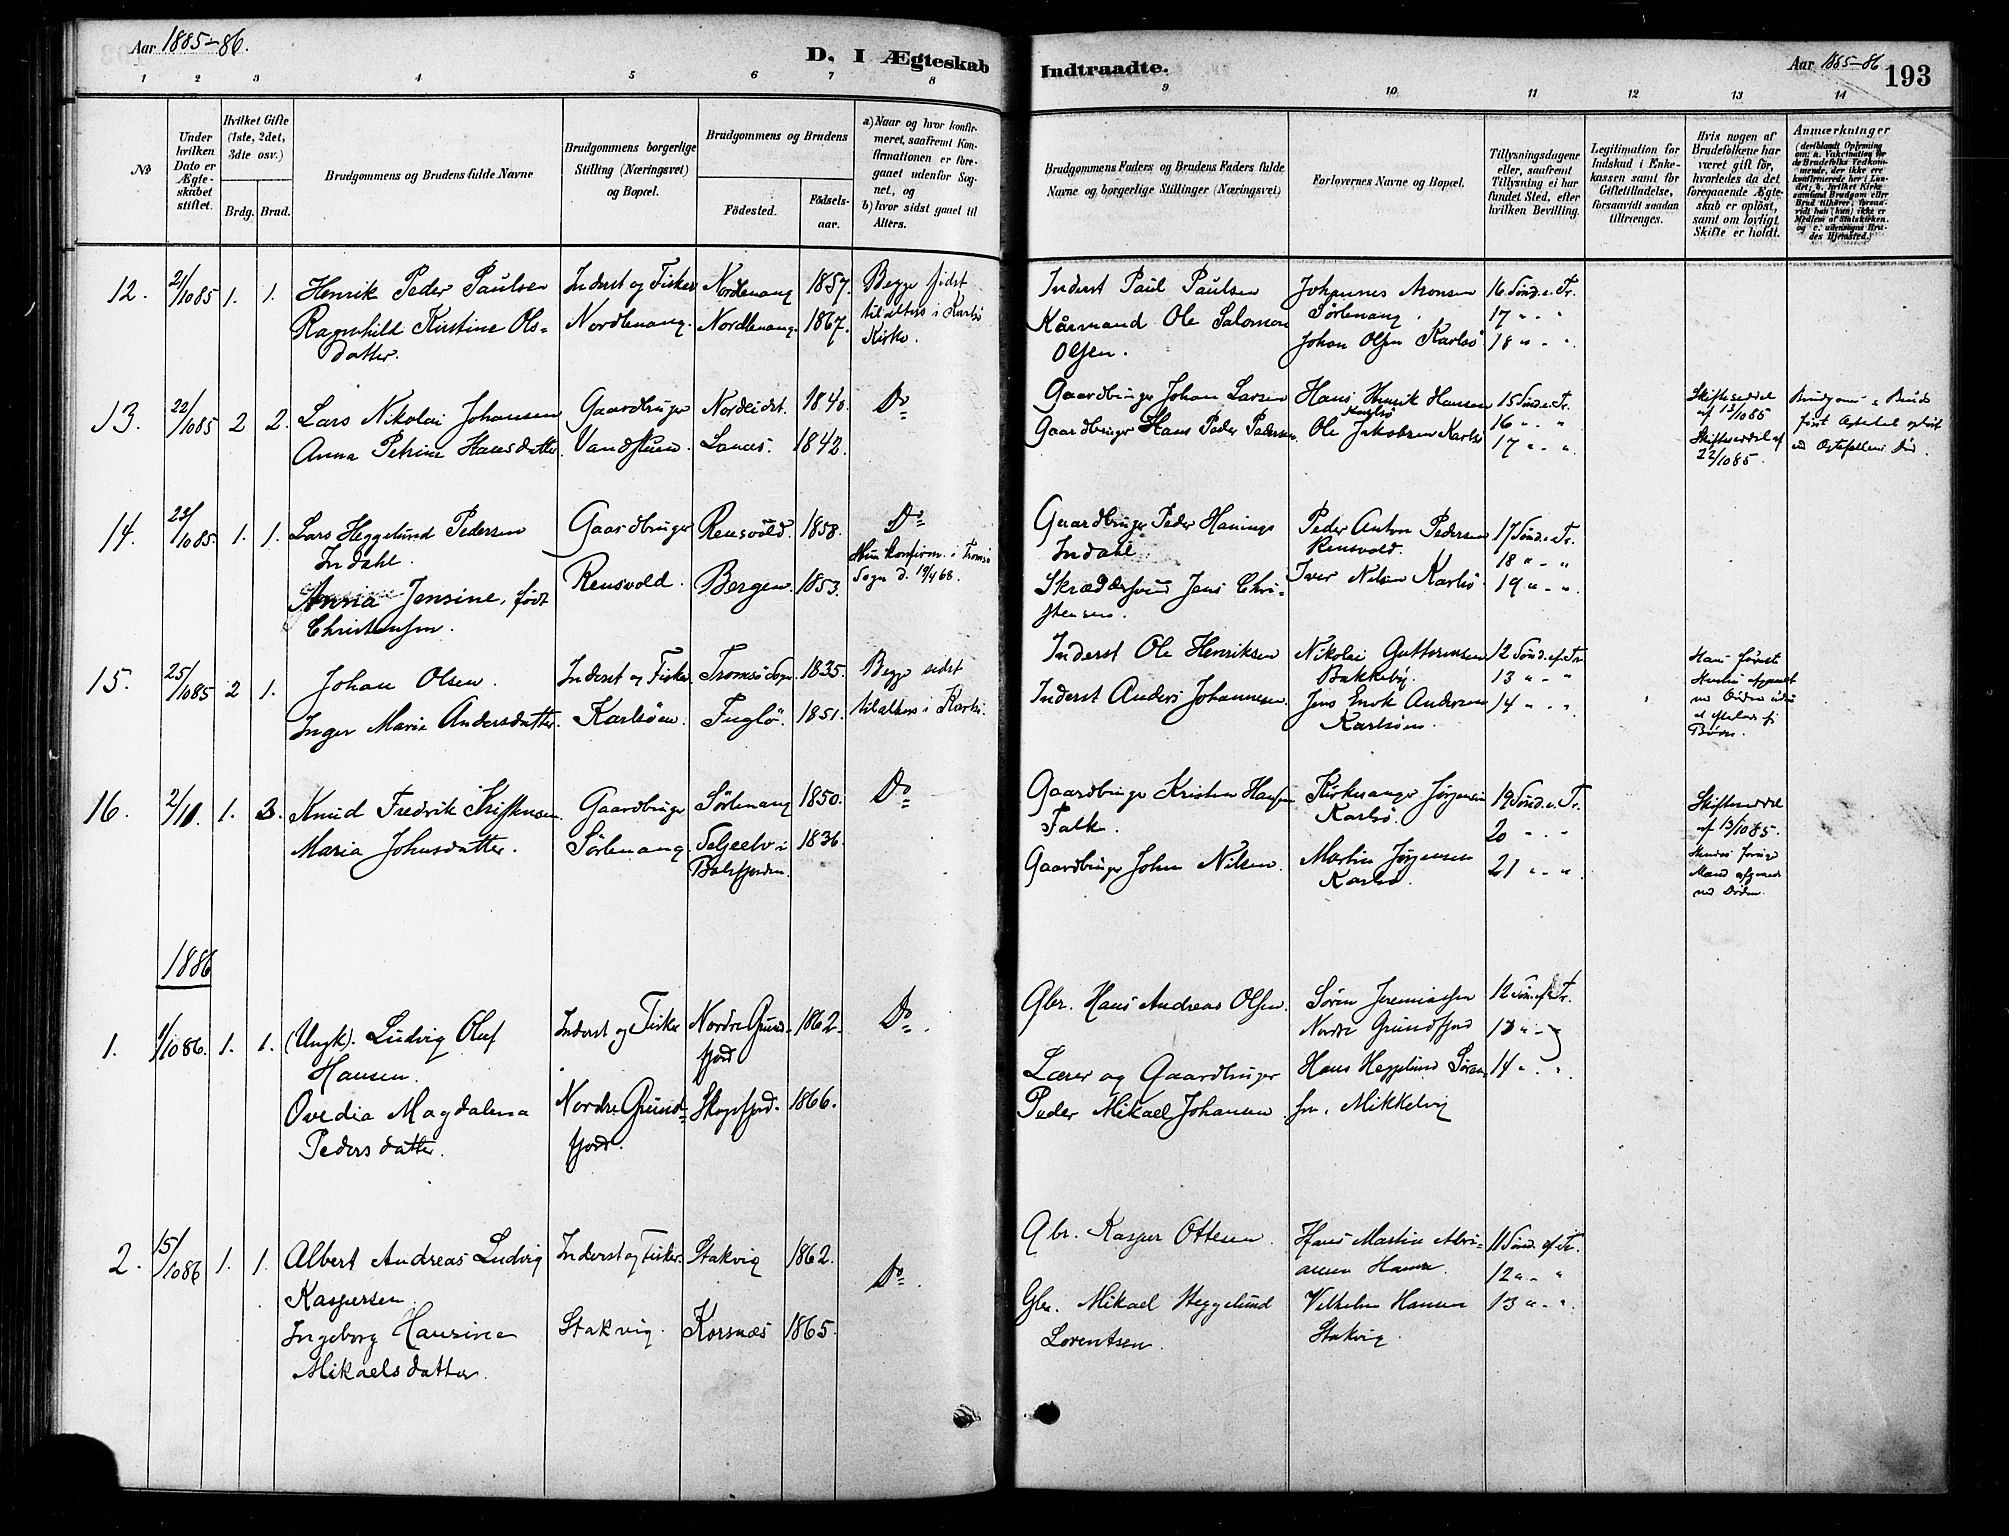 Aar 1885-86.
D. I Ægteskab Indtraadte.
Aar 1885-86
193
1 2 3 4 5 6 7 8 9 10 11 12 13 14
No
Under hvilken Dato er Ægteskabet stiftet.
Hvilket Gifte (1ste, 2det, 3die osv.)
Brdg. Brud.
Brudgommens og Brudens fulde Navne
Brudgommens borgerlige Stilling (Næringsvei) og Bopæl.
Brudgommens og Brudens
Födested.
Födselsaar.
a) Naar og hvor konfirmeret, saafremt Konfirmationen er foregaaet udenfor Sognet, og
b) hvor sidst gaaet til Alters.
Brudgommens Faders og Brudens Faders fulde Navne og borgerlige Stillinger (Næringsvei)
Forlovernes Navne og Bopæl.
Tillysningsdagene eller, saafremt Tillysning ei har fundet Sted, efter hvilken Bevilling.
Legitimation for Indskud i Enkekassen samt for Giftetilladelse, forsaavidt saadan tiltrænges.
Hvis nogen af Brudefolkene har været gift för, hvorledes da det foregaaende Ægteskab er oplöst, samt om lovligt Skifte er holdt.
Anmærkninger (deriblandt Oplysning om: a. Vakcination for de Brudefolks Vedkommende, der ikke ere konfirmerede her i Landet; b. hvilket Kirkesamfund Brudgom eller Brud tilhörer, forsaavidt han (hun) ikke er Medlem af Statskirken. og c. udensogns Brudes Hjemsted.)
12. 21/10 85 1. 1. Henrik Peder Paulsen
Ragnhild Kirstine Olsdatter.
Inderst og Fisker
Nordlenang.
Nordlenang 1857.
Nordlenang. 1867.
Begge sidst til alters i Karlsö Kirke.
Inderst Paul Paulsen
Kårmand Ole Salomon Olsen.
Johannes Monsen Sörlenang.
Johan Olsen Karlsö
16 Sönd. e. Tr.
17 " - "
18 " - "
13. 22/10 85 2 2. Lars Nikolai Johansen
Anna Petrine Hansdatter.
Gaardbruger
Nordeidet. 1840.
1842.
Do
Gaardbruger Johan Larsen
Gaardbruger Hans Peder Pedersen
Hans Henrik Hansen Karlsö
Ole Jakobsen Karlsö
15 Sönd. e. Tr.
16 " - "
17 " - "
Skifteseddel af 13/10 85
Skifteseddel af 22/10 85.
14. 23/10 85. 1. 1. Lars Heggelund Pedersen Indahl.
Anna Jensine, født Christensen.
Gaardbruger
Rensvold.
Rensvold. 1858.
Bergen. 1853.
Do
Hun konfirm. i Tromsö Sogn d. 19/4 68.
Gaardbruger Peder Hanings Indahl.
Skrædersvend Jens Christensen.
Peder Anton Pedersen Rensvold.
Iver Nilsen Karlsö.
17 Sönd. e. Tr.
18 " - "
19 " - "
15. 25/10 85 2 1. Johan Olsen.
Inger Marie Andersdatter.
Inderst og Fisker
Karlsöen.
Tromsö Sogn 1835.
Fuglö. 1851.
Begge sidst til alters i Karlsö.
Inderst Ole Henriksen
Inderst Anders Johannesen.
Nikolai Guttormsen Bakkeby.
Jens Enok Andersen Karlsöen.
12 Sönd. ef. Tr.
13 " - "
14 " - "
16. 2/11. 1. 3. Knud Fredrik Kristensen.
Maria Johnsdatter.
Gaardbruger
Sörlenang.
Sörlenang 1850.
Seljeelv i Balsfjorden. 1836.
Do
Gaardbruger Kristen Hansen Falk.
Gaardbruger John Nilsen.
Kirkesanger Jørgensen Karlsö.
Martin Jørgensen Karlsö.
19 Sönd. e. Tr.
20 " - "
21 " - "
Skifteseddel af 13/10 85.
Hendes forrige Mand afgaaet ved Döden.
1886
1. 1/10 86. 1. 1. (Ungk). Ludvig Oluf Hansen.
Ovedia Magdalena Pedersdatter.
Inderst og Fisker
Nordre Grundfjord.
Nordre Grundfjord 1862.
Skogsfjord. 1866.
Do
Gbr. Hans Andreas Olsen.
Lærer og Gaardbruger Peder Mikael Johansen
Sören Jeremiassen Nordre Grundfjord
Hans Heggelund Sörensen. Mikkelvig
12 Sön. ef. Tr.
13 " - "
14 " - "
2. 15/10 86 1. 1. Albert Andreas Ludvig Kaspersen.
Ingeborg Hansine Mikaelsdatter.
Inderst og Fisker.
Stakvig.
Stakvig 1862.
Korsnæs 1865.
Do
Gbr. Kasper Ottesen.
Gbr. Mikael Heggelund Lorentsen.
Hans Martin Hansen.
Vilhelm Hansen Stakvig.
11 Sönd. ef. Tr.
12 " - "
13 " - "